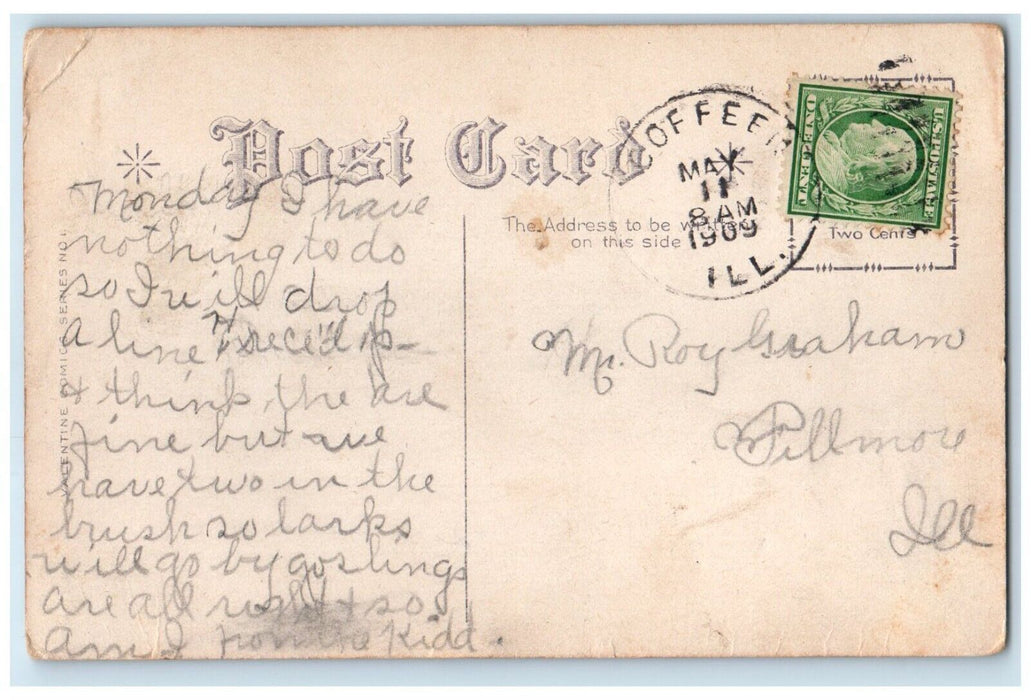 Post Card
COFFEE
MAY
11
8 AM
1909
ILL.
U.S. POSTAGE
ONE CENT
The Address to be written
on this side
Two Cents
VALENTINE COMICS SERIES NO 1.
Monday I have
nothing to do
so I will drop
a line I rec'd
& think the are
fine but we
have two in the
brush so larks
will go by goslings
are all right & so
am I from the Kidd.
Mr. Roy Graham
Fillmore
Ill